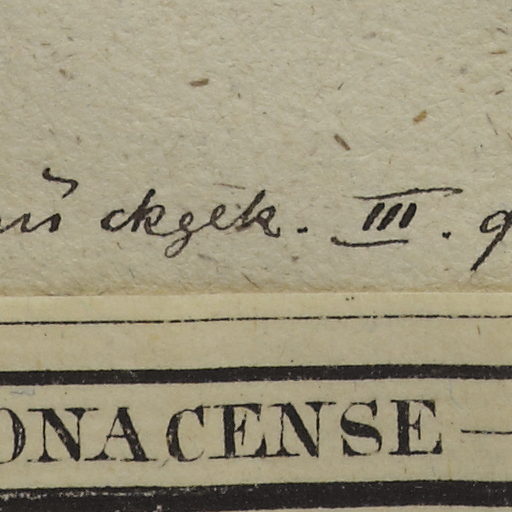 ckgek. III. 9
ONACENSE —